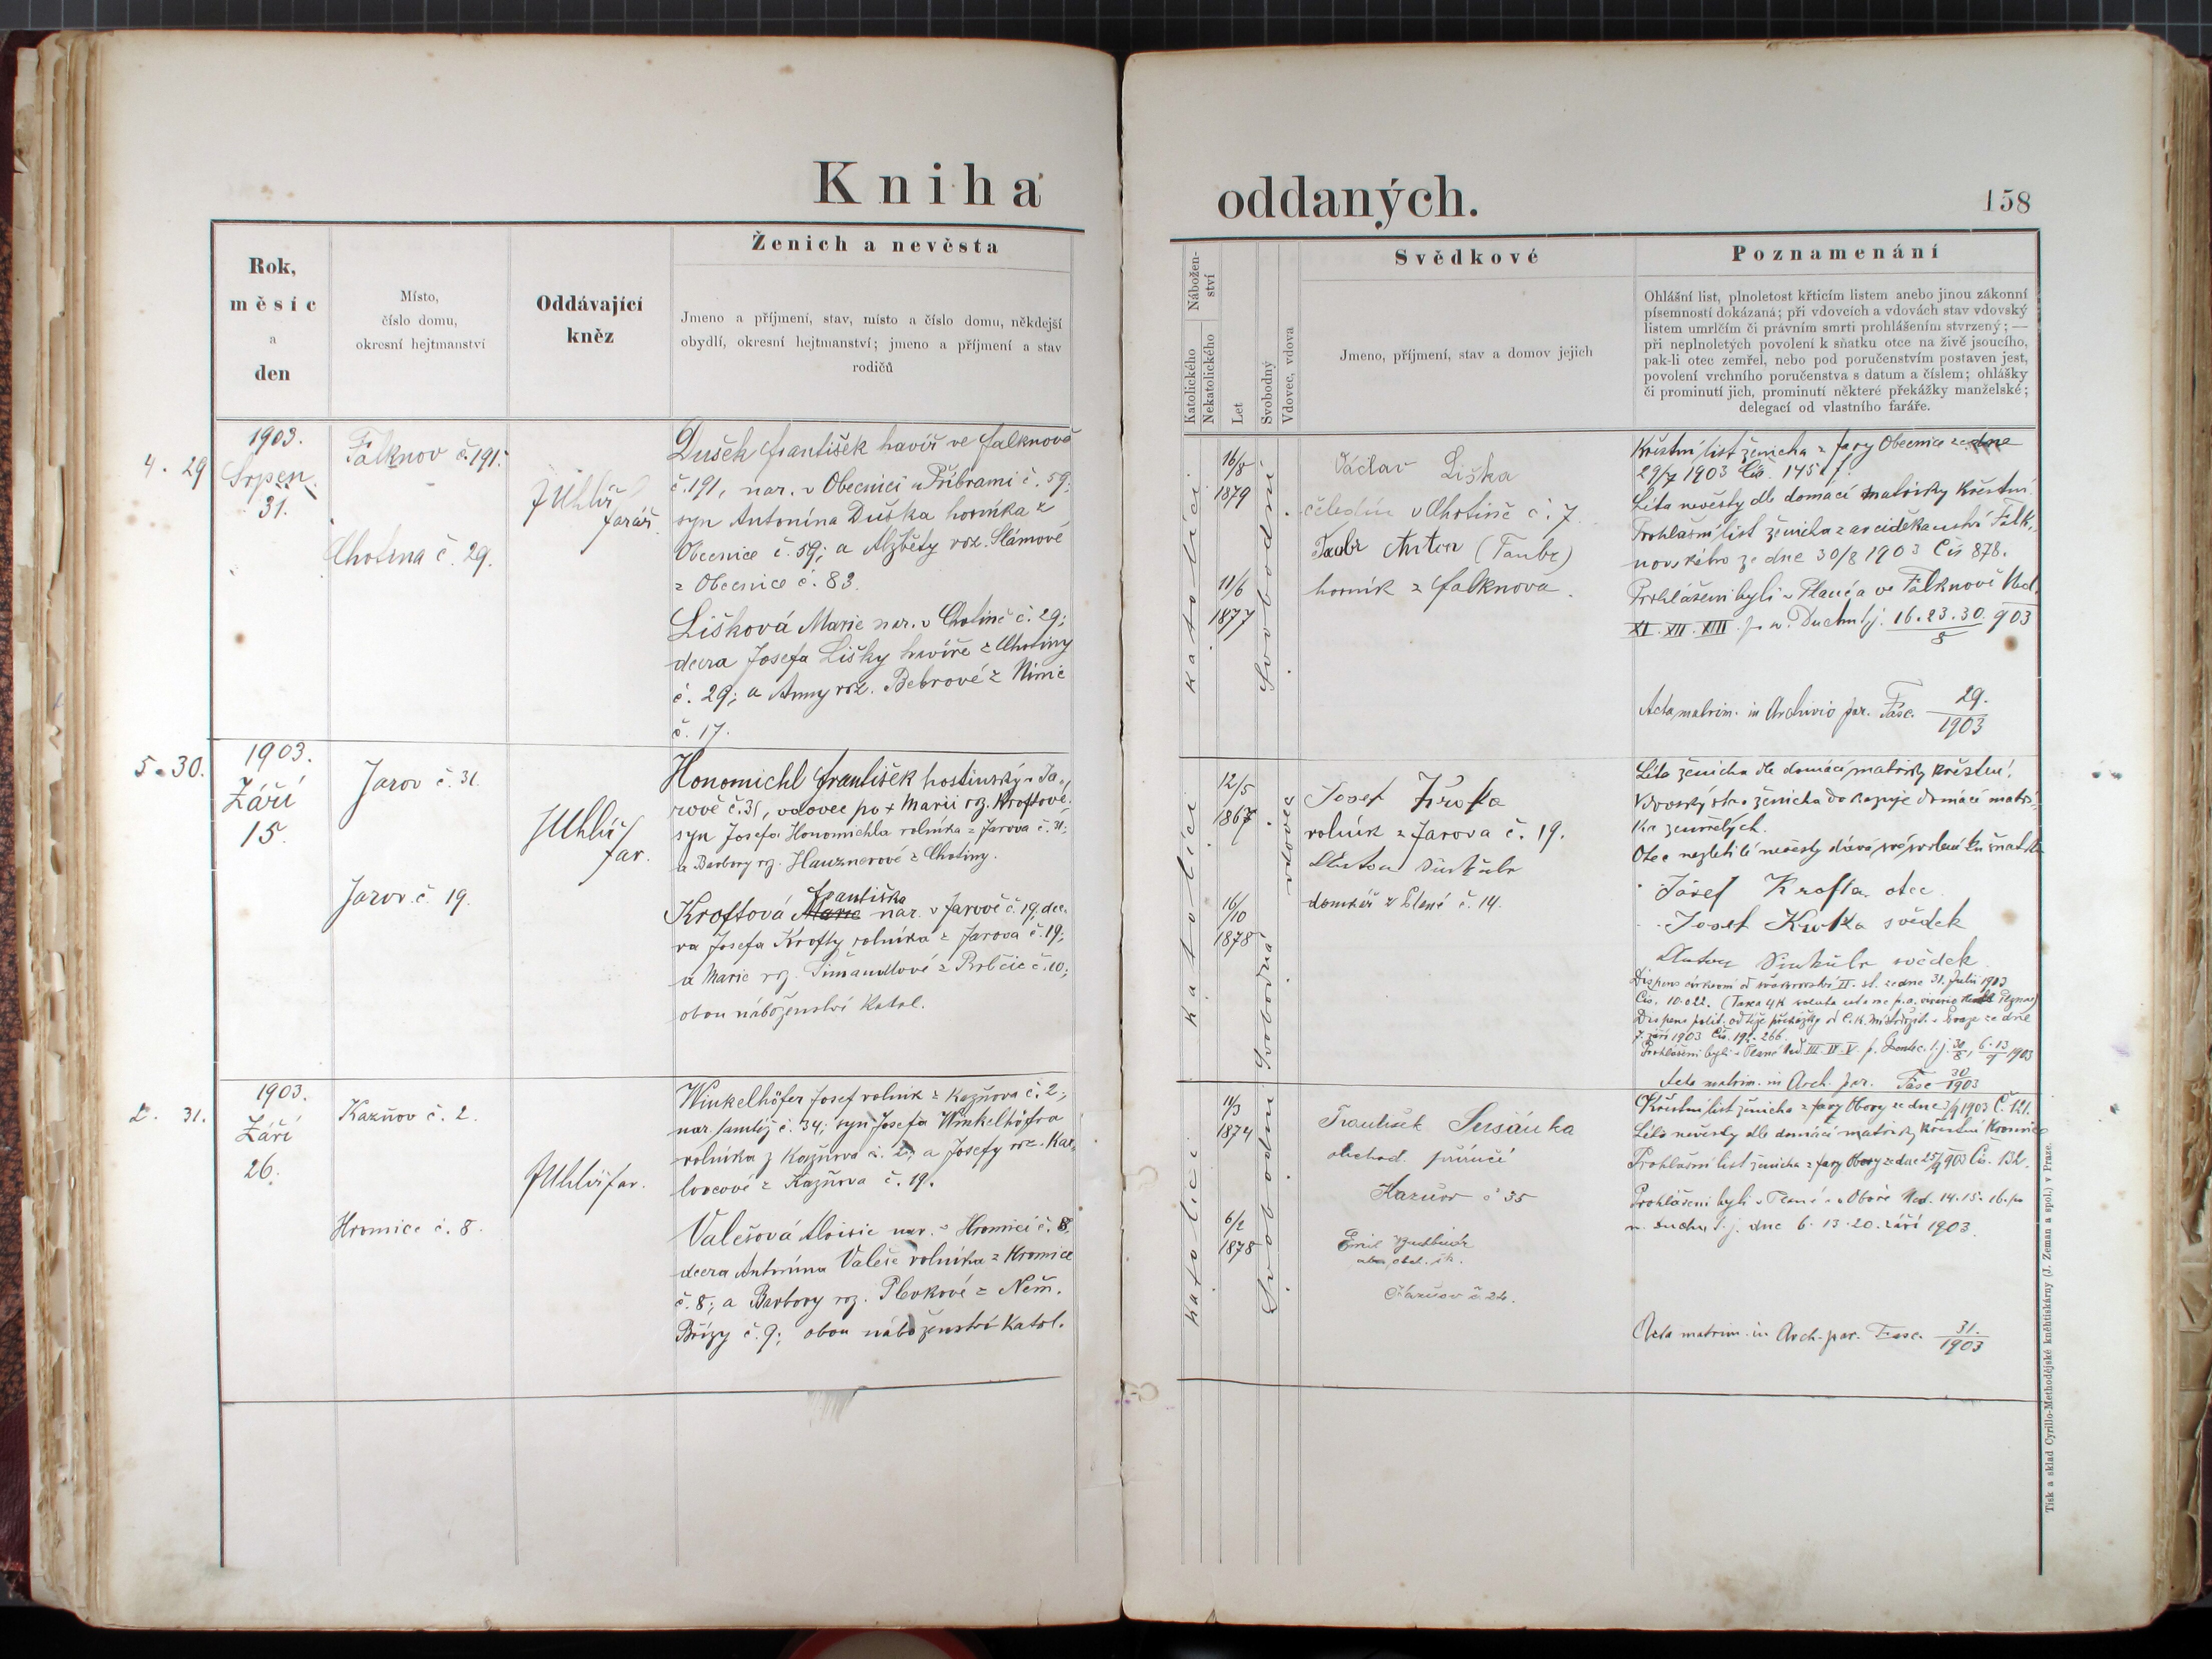 Kniha
oddaných.
158
Rok,
měsíc
a
den
Místo,
číslo domu,
okresní hejtmanství
Oddávající
kněz
Ženich a nevěsta
Jmeno a příjmení, stav, místo a číslo domu, někdejší
obydlí, okresní hejtmanství; jmeno a příjmení a stav
rodičů
Nábožen-
ství
Katolického
Nekatolického
Let
Svobodný
Vdovec, vdova
Svědkové
Jmeno, příjmení, stav a domov jejich
Poznamenání
Ohlášní list, plnoletost křticím listem anebo jinou zákonní
písemností dokázaná; při vdovcích a vdovách stav vdovský
listem umrlčím či právním smrti prohlášením stvrzený; —
při neplnoletých povolení k sňatku otce na živě jsoucího,
pak-li otec zemřel, nebo pod poručenstvím postaven jest,
povolení vrchního poručenstva s datum a číslem; ohlášky
či prominutí jich, prominutí některé překážky manželské;
delegací od vlastního faráře.
4. 29
1903.
Srpen
31.
Falknov č. 191.
Chotina č. 29.
JUhlíř
farář
Dušek František havíř ve Falknově
č. 191, nar. v Obecnici u Příbrami č. 59;
syn Antonína Duška horníka z
Obecnice č. 59; a Alžběty roz. Slámové
z Obecnice č. 83.
Lišková Marie nar. v Chotině č. 29;
dcera Josefa Lišky havíře z Chotiny
č. 29; a Anny roz. Bebrové z Nimic
č. 17.
katolíci
16/8
1879
11/6
1877
Svobodní
Václav Liška
čeledín v Chotině č. 7
Taubr Anton (Taubr)
horník z Falknova.
Křestní list ženicha z fary Obecnice ze dne
29/7 1903 Čís. 145
Léta nevěsty dle domácí matriky křestní.
Prohlašní list ženicha z arciděkanství Falk-
novského ze dne 30/8 1903 Čís 878.
Prohlášeni byli v Plané a ve Falknově Ned.
XI. XII. XIII. p. sv. Duchu t.j. 16. 23. 30. 903
8
Acta matrim. in Archivio par. Fasc. 29.
1903
5. 30.
1903.
Září
15.
Jarov č. 31.
Jarov č. 19.
JUhlíř
far.
Honomichl František hostinský v Ja-
rově č. 31, vdovec po + Marii roz. Kroftové;
syn Josefa Honomichla rolníka z Jarova č. 31;
a Barbory roz. Hauznerové z Chotiny.
Františka
Kroftová Marie nar. v Jarově č. 19; dce-
ra Josefa Krofty rolníka z Jarova č. 19;
a Marie roz. Šimandlové z Brlčic č. 10;
obou náboženství katol.
katolíci
12/5
1867
16/10
1878
vdovec
Svobodná
Josef Krofta
rolník z Jarova č. 19.
Anton
domkář z Plané č. 14.
Léta ženicha dle domácí matriky křestní.
Vdovský stav ženicha dokazuje domácí matri-
ka zemřelých.
Otec nezletilé nevěsty dává své svolení ku sňatku
Josef Krofta otec
Josef Krofta svědek
Anton svědek
Dispens církevní od švakrovství II. st. ze dne 31. Julii 1903
Čís. 10.022.
Dispens polit. od téže překážky od C.K. Místodržit. v Praze ze dne
7. září 1903 Čís. 192.266.
Prohlášeni byli v Plané Ned. III. IV. V. 30/8, 6. 13/9 1903
Acta matrim. in Arch. par. Fasc 30
1903
2. 31.
1903.
Září
26.
Kazňov č. 2.
Hromice č. 8.
JUhlíř far.
Winkelhöfer Josef rolník z Kazňova č. 2;
nar. tamtéž č. 34; syn Josefa Winkelhöfra
rolníka z Kazňova č. 2; a Josefy roz. Kar-
lovcové z Kazňova č. 19.
Valešová Aloisie nar. v Hromici č. 8,
dcera Antonína Valeše rolníka z Hromice
č. 8; a Barbory roz. Plevkové z Něm.
Břízy č. 9; obou náboženství katol.
katolíci
11/3
1874
6/2
1878
Svobodní
František Susánka
obchod. příručí
Kazňov č 35
Emil
Kazňov č. 22.
Křestní list ženicha z fary Obory ze dne 3/9 1903 Č. 121.
Léta nevěsty dle domácí matriky křestní Hromice
Prohlašní list ženicha z fary Obory ze dne 25/9 903 Čís. 132.
Prohlášeni byli v Plané a v Oboře Ned. 14. 15. 16. po
sv. Duchu t. j. dne 6. 13. 20. září 1903.
Acta matrim. in Arch. par. Fasc. 31.
1903
Tisk a sklad Cyrillo-Methodějské kněhtiskárny (J. Zeman a spol.) v Praze.